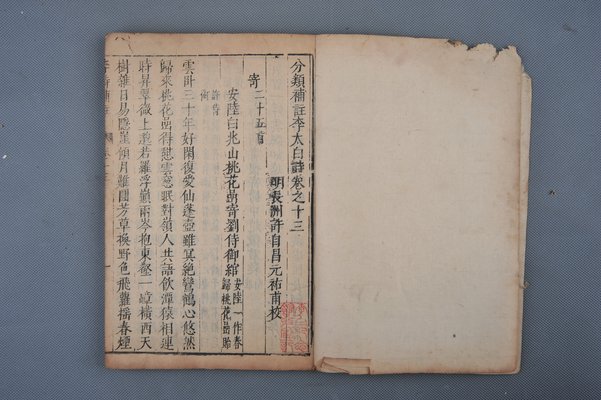 分類補註李太白詩卷之十三
明長洲許自昌元祐甫校
寄二十五首
安陸白兆山桃花巖寄劉侍御綰
安陸一作春
歸桃花巖貽
許侍
御
雲臥三十年好閑復愛仙蓬壺雖冥絶鸞鶴心悠然
歸來桃花巖得憩雲窓眠對嶺人共語飲潭猿相連
時昇翠微上邈若羅浮巔兩岑抱東壑一嶂橫西天
樹雜日易隱崖傾月難圓芳草換野色飛蘿搖春煙